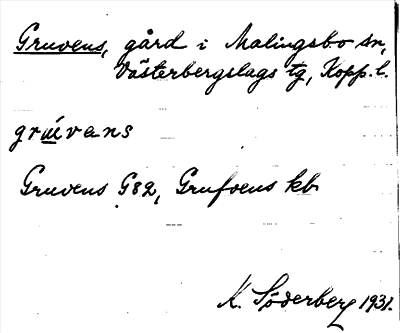 Gruvens, gård i Malingsbo sn,
Västerbergslags tg, Kopp. l.
grúvens
Gruvens G82, Grufvens kb
K. Söderberg 1931.